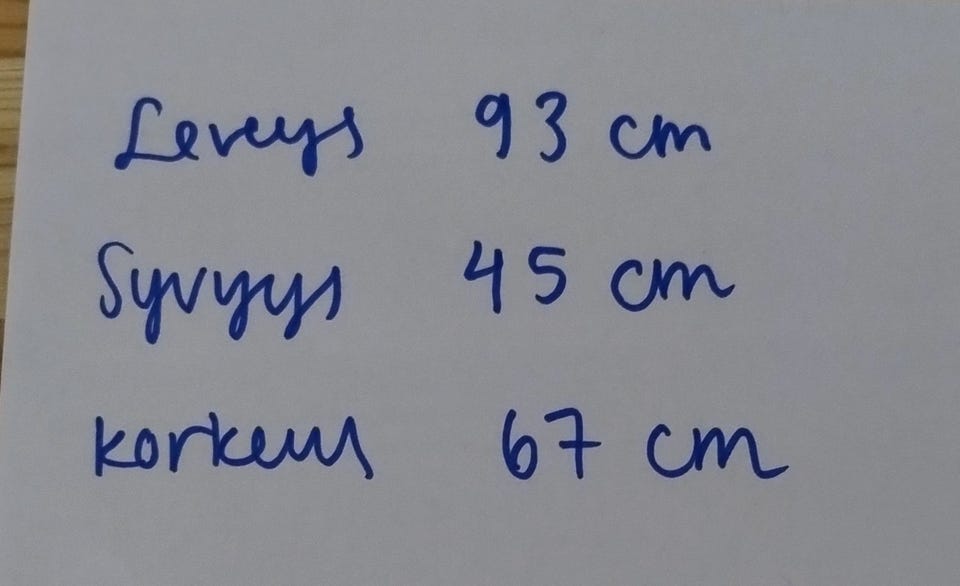 Leveys 93 cm
Syvyys 45 cm
korkeus 67 cm